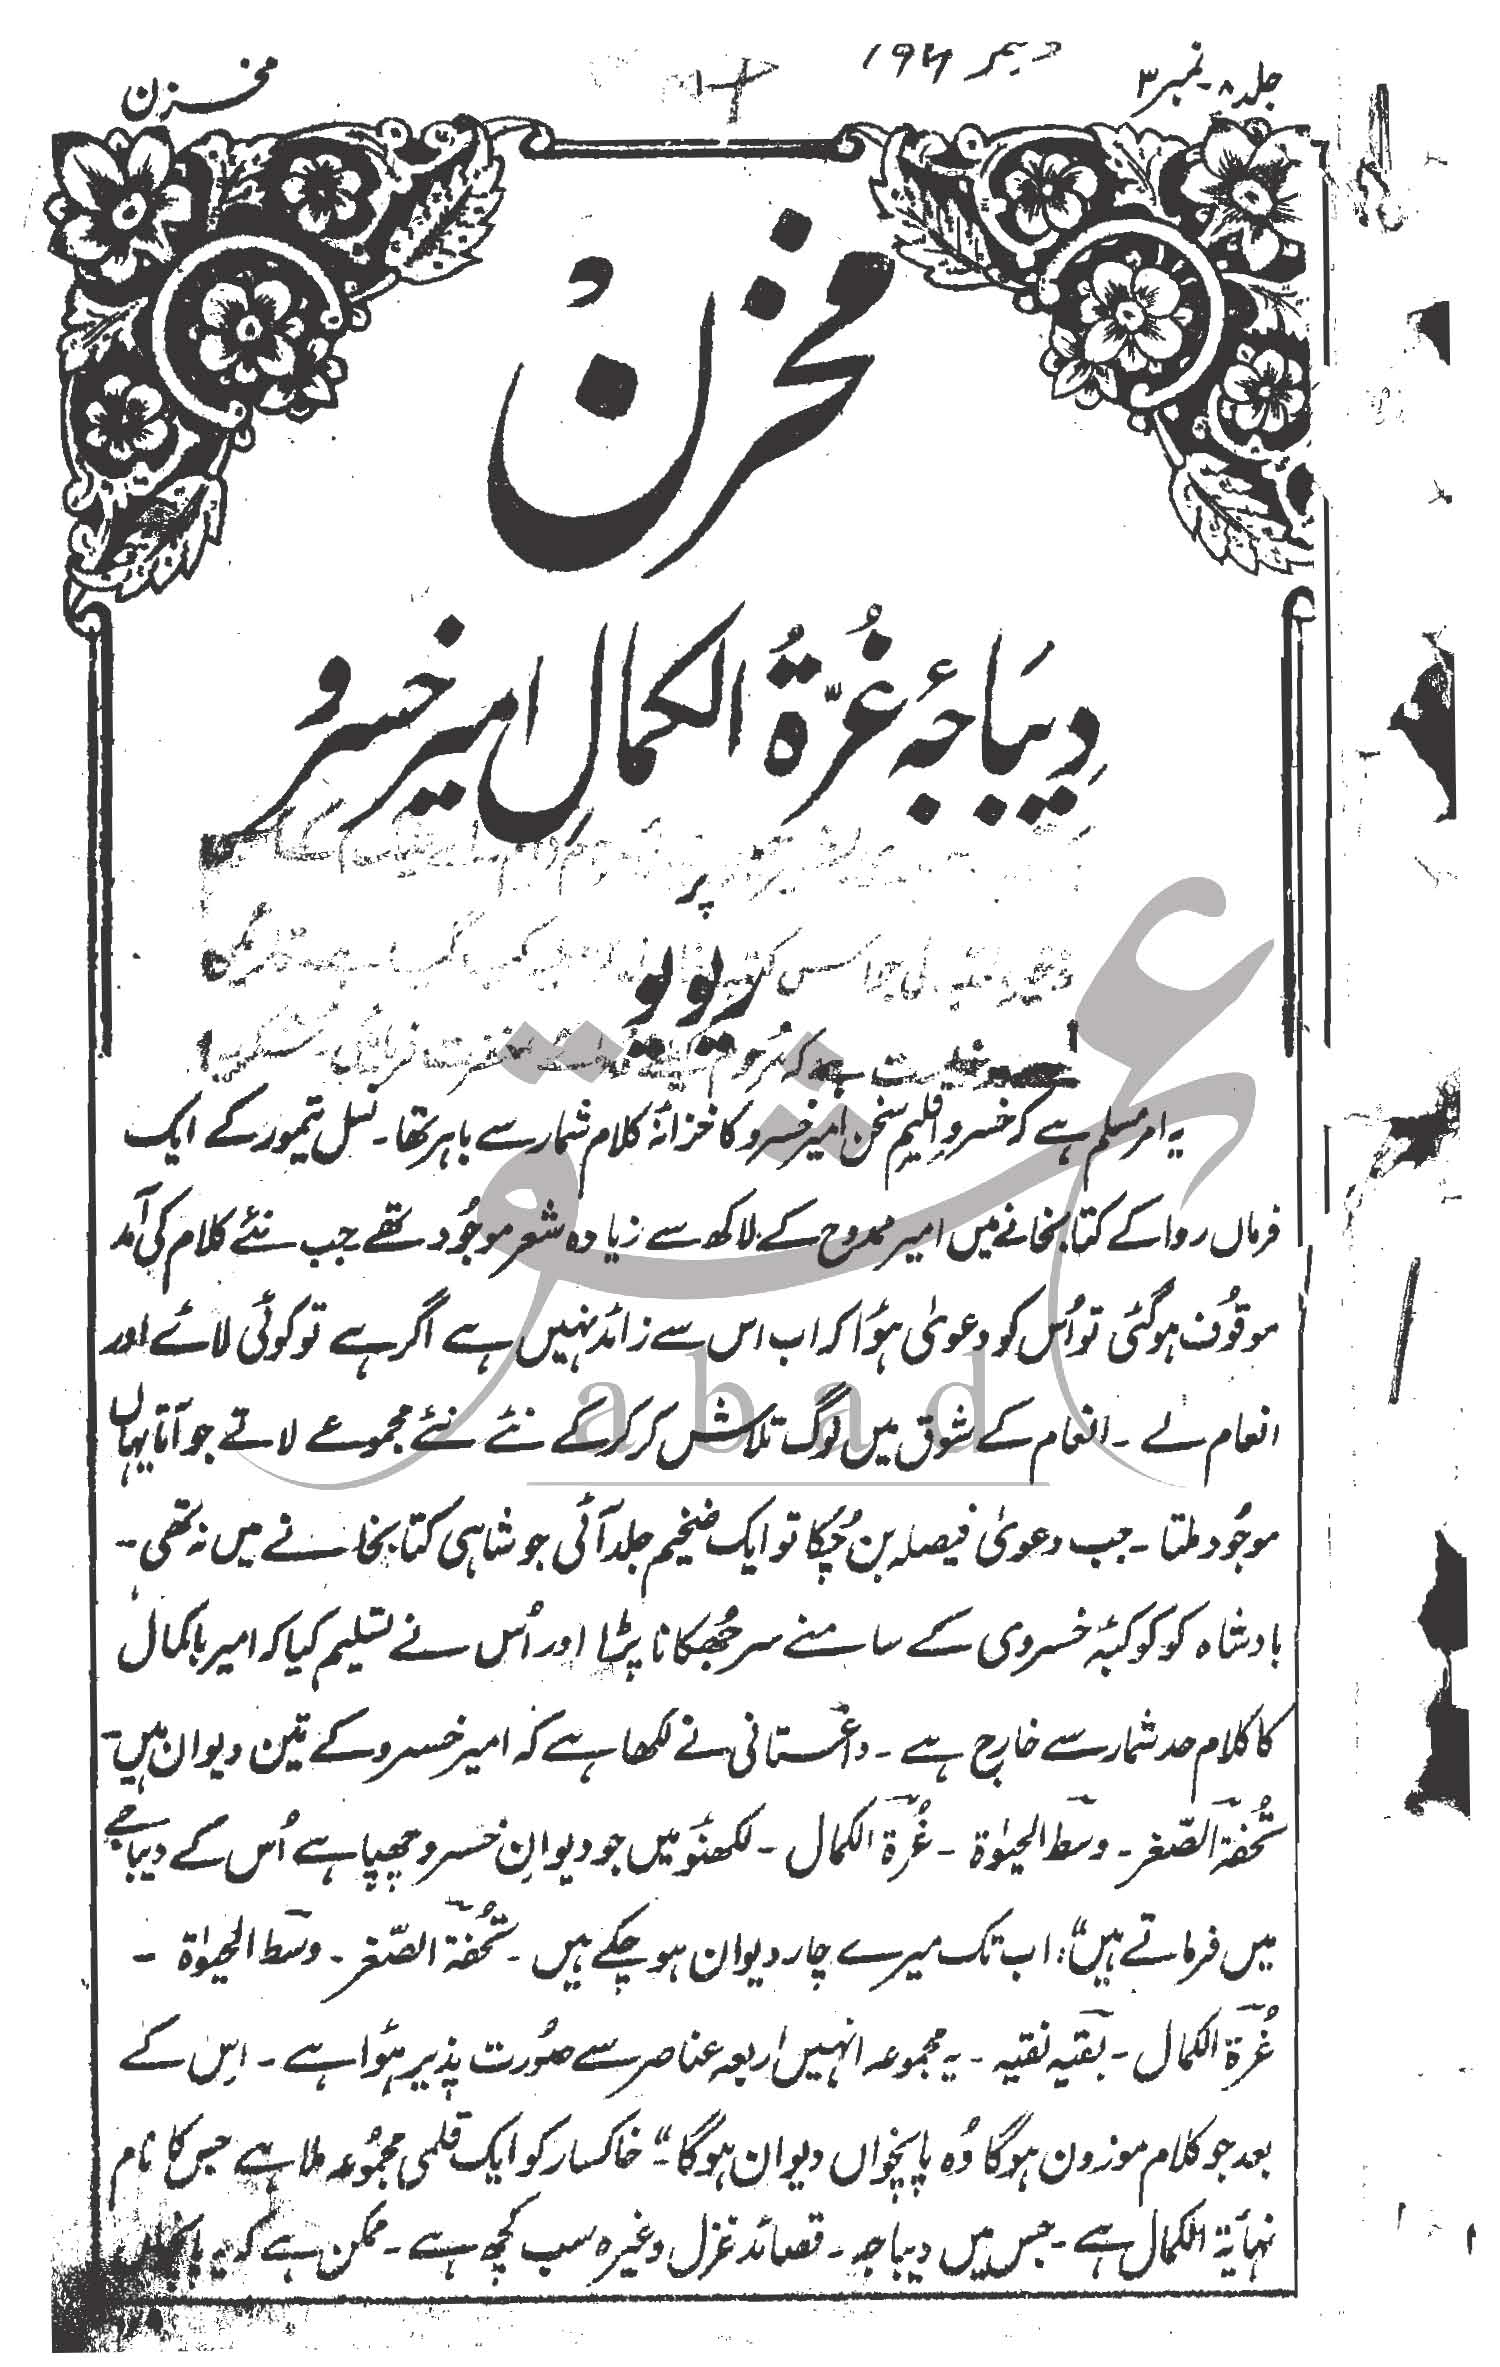 جلد ۸ - نمبر ۳
دسمبر
مخزن
مخزن
دِیباجۂ غُرّۃُ الکمالِ امیر خسرو
پر
ریویو
یہ امر مسلم ہے کہ خسروِ اقلیمِ سخن امیر خسرو کا خزانۂ کلام شمار سے باہر تھا - نسل تیمور کے ایک
فرماں روا کے کتابخانے میں امیر ممدوح کے لاکھ سے زیادہ شعر موجُود تھے جب نئے کلام کی آمد
موقُوف ہو گئی تو اُس کو دعویٰ ہؤا کہ اب اس سے زائد نہیں ہے اگر ہے تو کوئی لائے اور
انعام لے - انعام کے شوق میں لوگ تلاش کر کر کے نئے نئے مجموعے لاتے جو آتا یہاں
موجُود ملتا - جب دعویٰ فیصلہ بن چُکا تو ایک ضخیم جلد آئی جو شاہی کتابخانے میں نہ تھی -
بادشاہ کو کوکبۂ خسروی کے سامنے سر جُھکانا پڑا اور اُس نے تسلیم کیا کہ امیر باکمال
کا کلام حد شمار سے خارج ہے - داغستانی نے لکھا ہے کہ امیر خسرو کے تین دیوان ہیں -
تُحفۃ الصّغر - وسط الحیٰوۃ - غُرۃ الکمال - لکھنؤ میں جو دیوانِ خسرو چھپا ہے اُس کے دیباچے
میں فرماتے ہیں "اب تک میرے چار دیوان ہو چکے ہیں - تُحفۃ الصّغر - وسط الحیٰوۃ -
غُرۃ الکمال - بقیہ نقیہ - یہ مجموعہ انہیں اربعہ عناصر سے صُورت پذیر ہؤا ہے - اِس کے
بعد جو کلام موزون ہوگا وُہ پانچواں دیوان ہوگا -" خاکسار کو ایک قلمی مجموُعہ ملا ہے جس کا نام
نہایۃ الکمال ہے - جس میں دیباجہ - قصائد غزل وغیرہ سب کچھ ہے - ممکن ہے کہ یہ پانچواں
abad